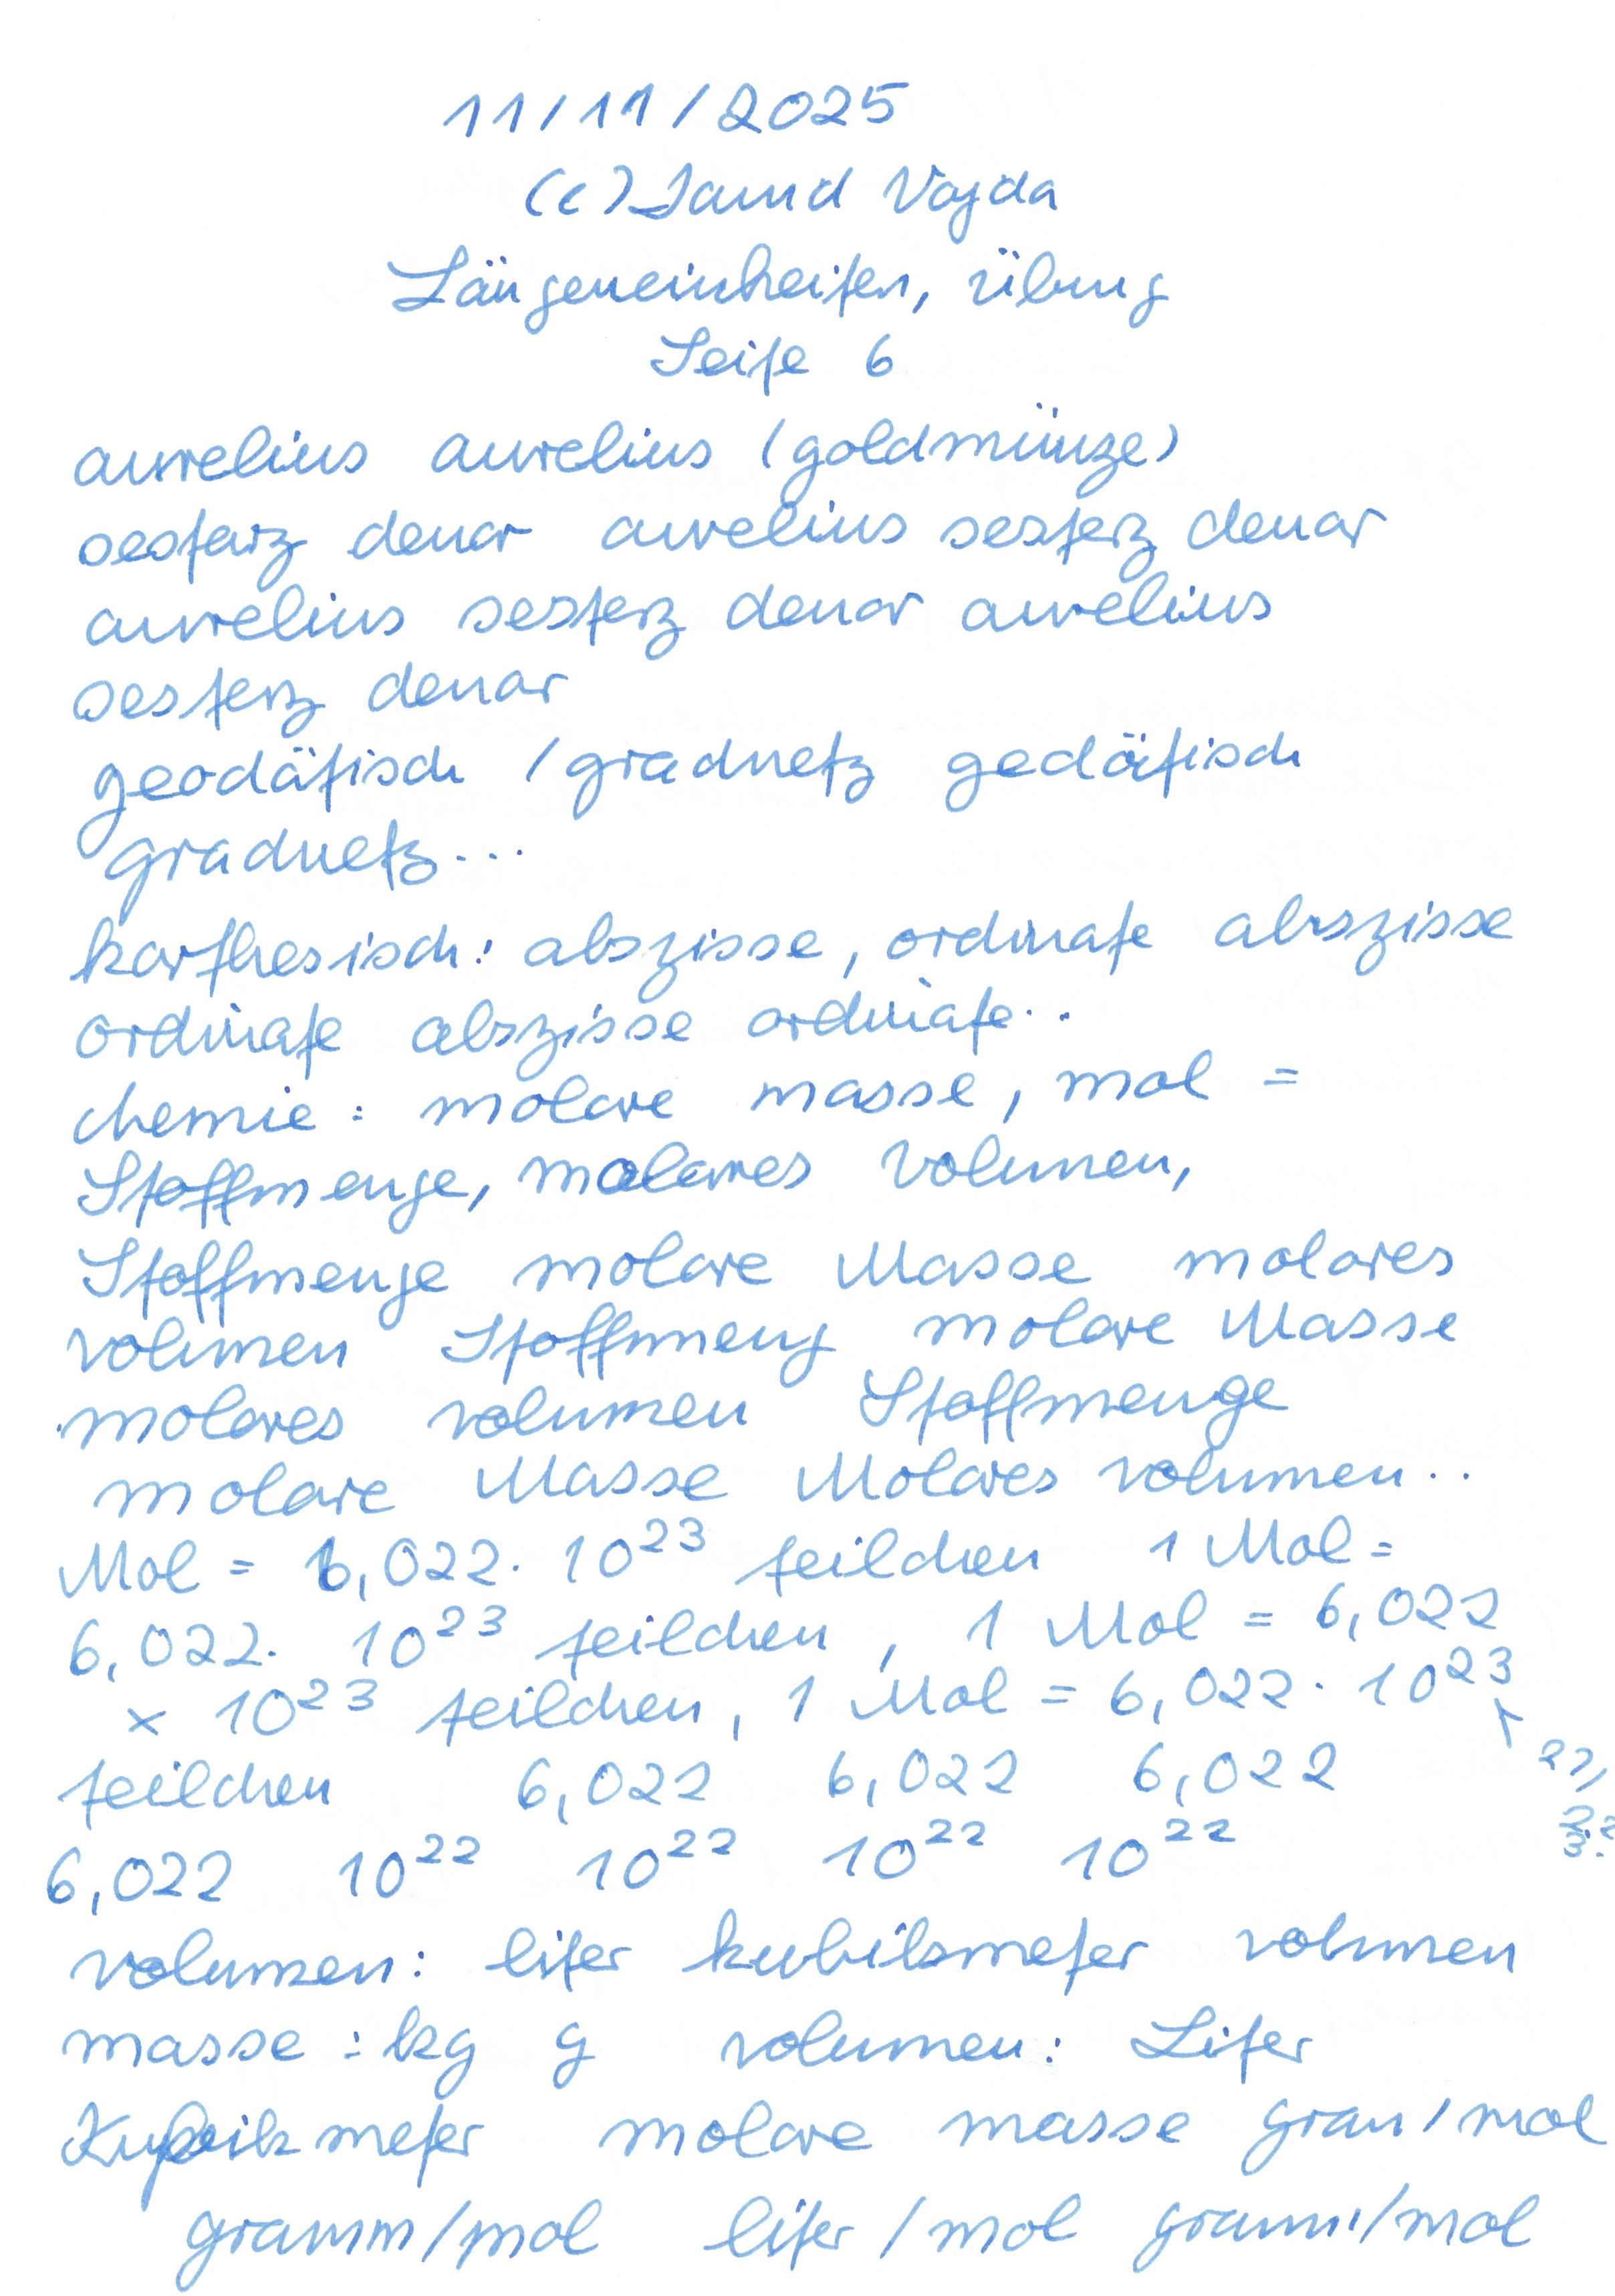 11/11/2025
(c) David Vajda
Längeneinheiten, übung
Seite 6
aurelius aurelius (goldmünze)
sesterz denar aurelius sesterz denar
aurelius sesterz denar aurelius
sesterz denar
geodätisch /gradnetz gedätisch
gradnetz...
karthesisch: abszisse, ordinate abszisse
ordinate abszisse ordinate..
chemie: molare masse, mol =
Stoffmenge, molares Volumen,
Stoffmenge molare Masse molares
volumen Stoffmeng molare Masse
molares volumen Stoffmenge
molare Masse Molares volumen..
Mol = 6,022 · 10²³ teilchen 1 Mol =
6,022 · 10²³ teilchen, 1 Mol = 6,022
× 10²³ teilchen, 1 Mol = 6,022 · 10²³
teilchen 6,022 6,022 6,022
6,022 10²² 10²² 10²² 10²²
volumen: liter kubikmeter volumen
masse: kg g volumen: Liter
Kubikmeter molare masse gram/mol
gramm/mol liter/mol gramm/mol